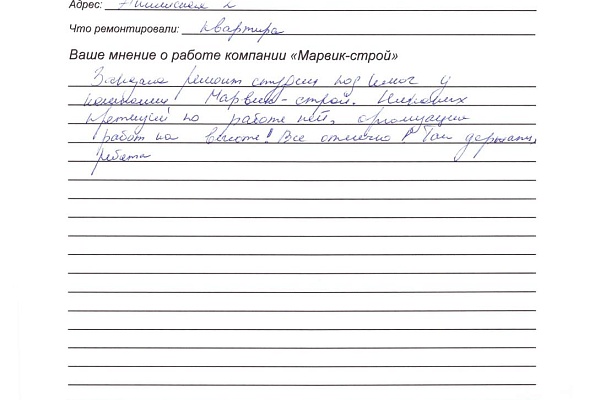 Адрес: 2
Что ремонтировали: квартира
Ваше мнение о работе компании «Марвик-строй»
Заказала ремонт студии под ключ у
компании Марвик-строй. Никаких
претензий по работе нет, организация
работ на высоте! Все отлично! Так держать,
ребята